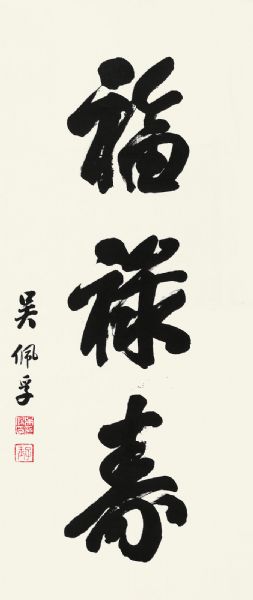 福禄寿
吴佩孚